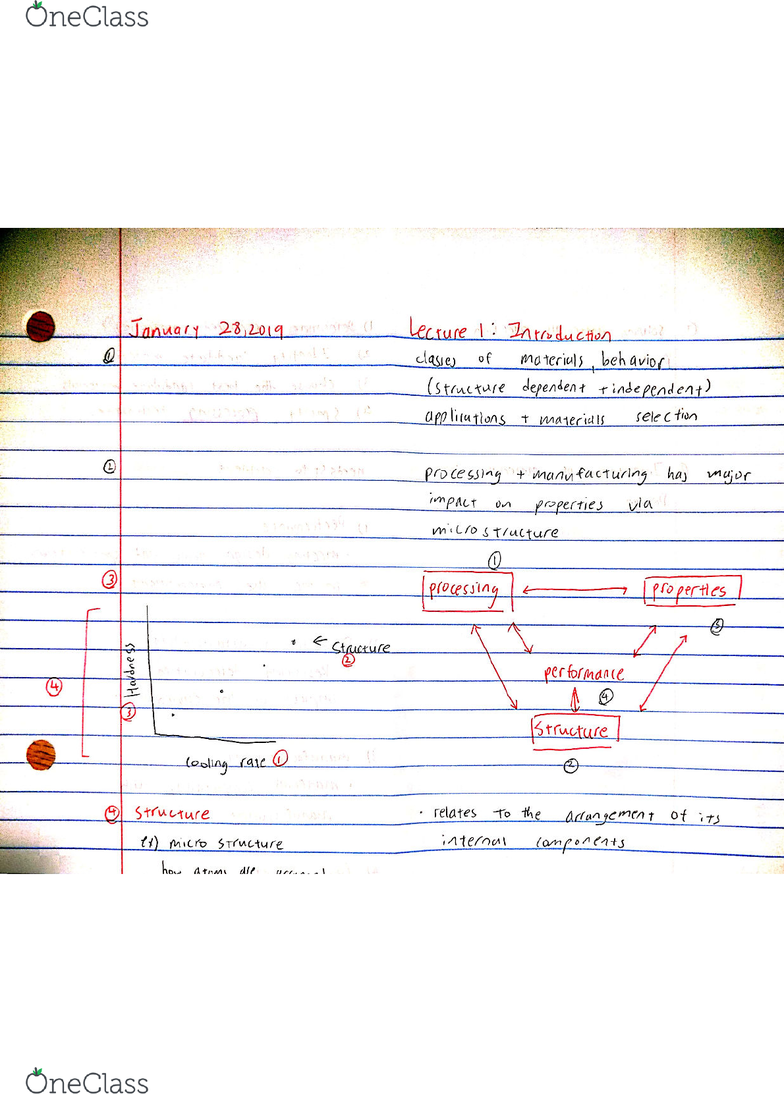 OneClass
January 28, 2019 Lecture 1: Introduction
① classes of materials, behavior
(structure dependent + independent)
applications + materials selection
② processing + manufacturing has major
impact on properties via
microstructure
①
③ processing properties
③
← Structure
②
performance
④
④
Hardness
③
Structure
②
cooling rate ①
④ structure · relates to the arrangement of its
internal components
micro structure
how atoms are
OneClass